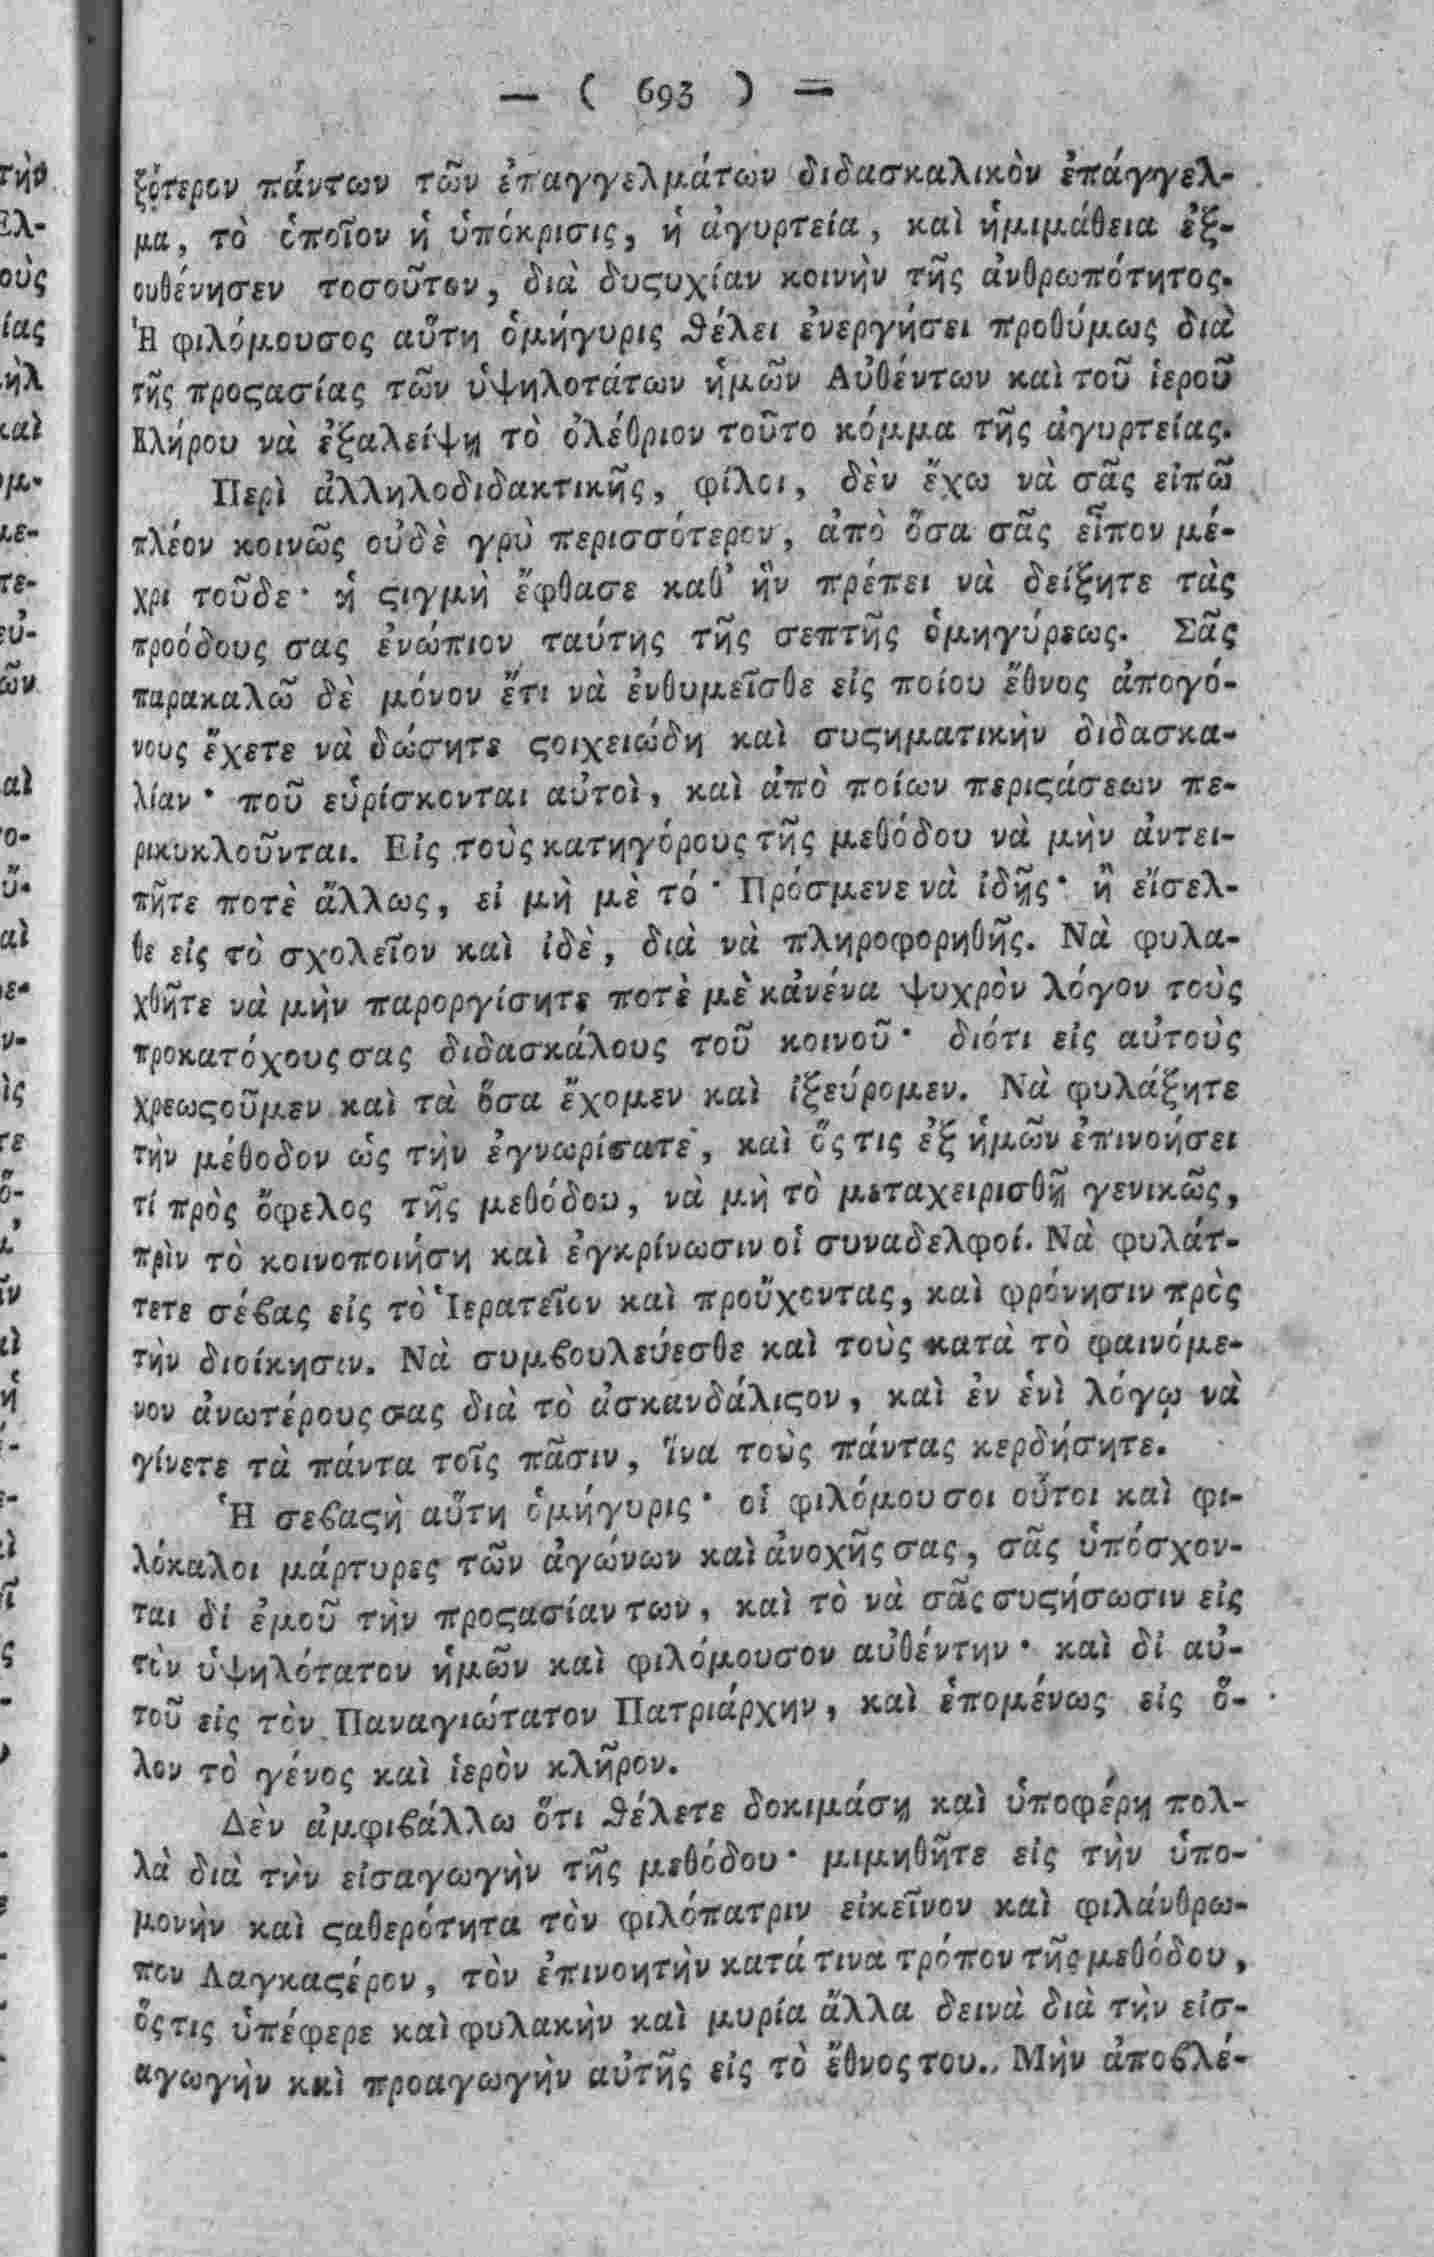 — ( 693 ) —
ξότερον πάντων τῶν ἐπαγγελμάτων διδασκαλικὸν ἐπάγγελ-
μα, τὸ ὁποῖον ἡ ὑπόκρισις, ἡ ἀγυρτεία, καὶ ἡμιμάθεια ἐξ-
ουθένησεν τοσοῦτον, διὰ δυςυχίαν κοινὴν τῆς ἀνθρωπότητος.
Ἡ φιλόμουσος αὕτη ὁμήγυρις θέλει ἐνεργήσει προθύμως διὰ
τῆς προςασίας τῶν ὑψηλοτάτων ἡμῶν Αὐθέντων καὶ τοῦ ἱεροῦ
Κλήρου νὰ ἐξαλείψῃ τὸ ὀλέθριον τοῦτο κόμμα τῆς ἀγυρτείας.
Περὶ ἀλληλοδιδακτικῆς, φίλοι, δὲν ἔχω νὰ σᾶς εἰπῶ
πλέον κοινῶς οὐδὲ γρὺ περισσότερον, ἀπὸ ὅσα σᾶς εἶπον μέ-
χρι τοῦδε· ἡ ςιγμὴ ἔφθασε καθ' ἣν πρέπει νὰ δείξητε τὰς
προόδους σας ἐνώπιον ταύτης τῆς σεπτῆς ὁμηγύρεως. Σᾶς
παρακαλῶ δὲ μόνον ἔτι νὰ ἐνθυμεῖσθε εἰς ποίου ἔθνος ἀπογό-
νους ἔχετε νὰ δώσητε ςοιχειώδη καὶ συςηματικὴν διδασκα-
λίαν· ποῦ εὑρίσκονται αὐτοὶ, καὶ ἀπὸ ποίων περιςάσεων πε-
ρικυκλοῦνται. Εἰς τοὺς κατηγόρους τῆς μεθόδου νὰ μὴν ἀντει-
πῆτε ποτὲ ἄλλως, εἰ μὴ μὲ τό· Πρόσμενε νὰ ἰδῇς· ἢ εἴσελ-
θε εἰς τὸ σχολεῖον καὶ ἰδὲ, διὰ νὰ πληροφορηθῇς. Νὰ φυλα-
χθῆτε νὰ μὴν παροργίσητε ποτὲ μὲ κἀνένα ψυχρὸν λόγον τοὺς
προκατόχους σας διδασκάλους τοῦ κοινοῦ· διότι εἰς αὐτοὺς
χρεωςοῦμεν καὶ τὰ ὅσα ἔχομεν καὶ ἰξεύρομεν. Νὰ φυλάξητε
τὴν μέθοδον ὡς τὴν ἐγνωρίσατε, καὶ ὅς τις ἐξ ἡμῶν ἐπινοήσει
τί πρὸς ὄφελος τῆς μεθόδου, νὰ μὴ τὸ μεταχειρισθῇ γενικῶς,
πρὶν τὸ κοινοποιήσῃ καὶ ἐγκρίνωσιν οἱ συναδελφοί. Νὰ φυλάτ-
τετε σέβας εἰς τὸ Ἱερατεῖον καὶ προὔχοντας, καὶ φρόνησιν πρὸς
τὴν διοίκησιν. Νὰ συμβουλεύεσθε καὶ τοὺς κατὰ τὸ φαινόμε-
νον ἀνωτέρους σας διὰ τὸ ἀσκανδάλιςον, καὶ ἐν ἑνὶ λόγῳ νὰ
γίνετε τὰ πάντα τοῖς πᾶσιν, ἵνα τοὺς πάντας κερδήσητε.
Ἡ σεβαςὴ αὕτη ὁμήγυρις· οἱ φιλόμουσοι οὗτοι καὶ φι-
λόκαλοι μάρτυρες τῶν ἀγώνων καὶ ἀνοχῆς σας, σᾶς ὑπόσχον-
ται δι' ἐμοῦ τὴν προςασίαν των, καὶ τὸ νὰ σᾶς συςήσωσιν εἰς
τὸν ὑψηλότατον ἡμῶν καὶ φιλόμουσον αὐθέντην· καὶ δι' αὐ-
τοῦ εἰς τὸν Παναγιώτατον Πατριάρχην, καὶ ἑπομένως εἰς ὅ-
λον τὸ γένος καὶ ἱερὸν κλῆρον.
Δὲν ἀμφιβάλλω ὅτι θέλετε δοκιμάσῃ καὶ ὑποφέρῃ πολ-
λὰ διὰ τὴν εἰσαγωγὴν τῆς μεθόδου· μιμηθῆτε εἰς τὴν ὑπο-
μονὴν καὶ ςαθερότητα τὸν φιλόπατριν εἰκεῖνον καὶ φιλάνθρω-
πον Λαγκαςέρον, τὸν ἐπινοητὴν κατά τινα τρόπον τῆς μεθόδου,
ὅς τις ὑπέφερε καὶ φυλακὴν καὶ μυρία ἄλλα δεινὰ διὰ τὴν εἰσ-
αγωγὴν καὶ προαγωγὴν αὐτῆς εἰς τὸ ἔθνος του.. Μὴν ἀποβλέ-